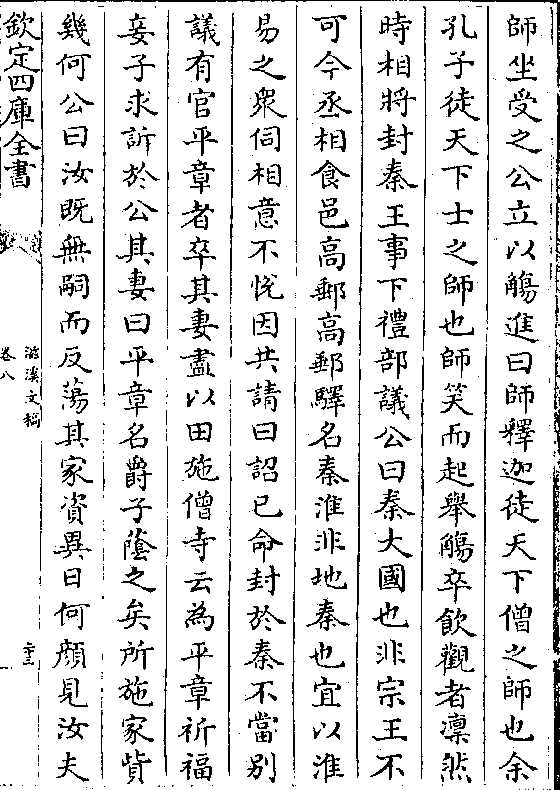 師坐受之公立以觴進曰師釋迦徒天下僧之師也余
孔子徒天下士之師也師笑而起舉觴卒飲觀者凛然
時相將封秦王事下禮部議公曰秦大國也非宗王不
可今丞相食邑高郵高郵驛名秦淮非地秦也宜以淮
易之衆伺相意不悅因共請曰詔已命封於秦不當别
議有官平章者卒其妻盡以田施僧寺云為平章祈福
妾子求訴於公其妻曰平章名爵子䕃之矣所施家貲
幾何公曰汝既無嗣而反蕩其家資異日何顔見汝夫
欽定四庫全書
滋溪文稿
卷八